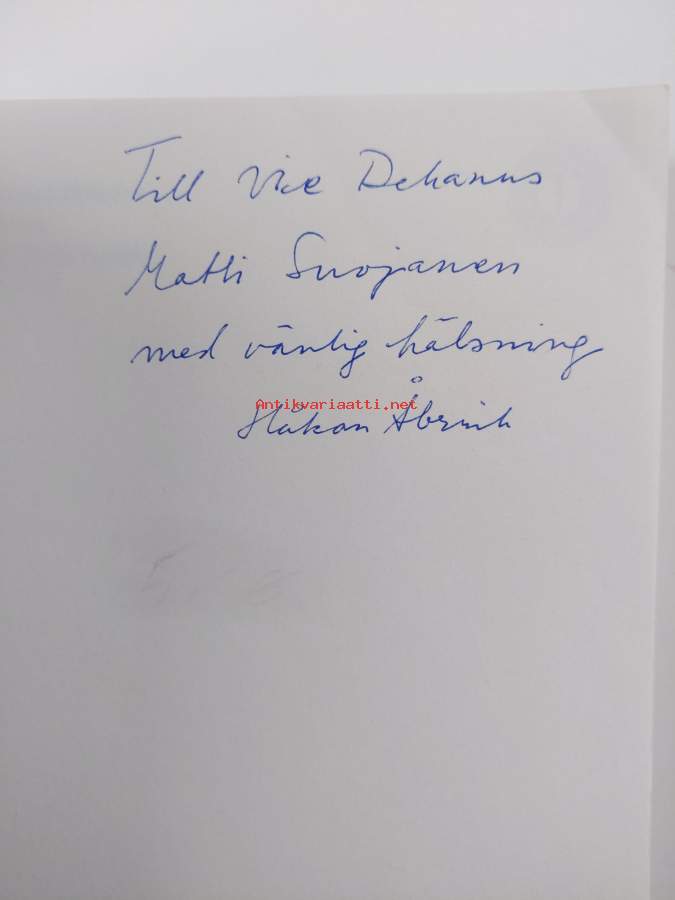 Till Vice Dekanus
Matti Suojanen
med vänlig hälsning
Antikvariaatti.net
Håkan